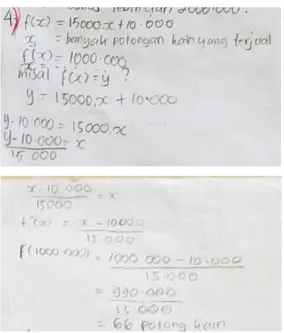 lebih dari 2000.000.
4) f(x) = 15000.x + 10.000
x = banyak potongan kain yang terjual
f(x) = 1000.000
x = ?
misal f(x) = y
y = 15000.x + 10.000
y - 10.000 = 15000.x
y - 10.000 = x
15 000
x - 10.000 = x
15000
f⁻¹(x) = x - 10000
15.000
f(1000.000) = 1000 000 - 10.000
15.000
= 990.000
15 000
= 66 potong kain